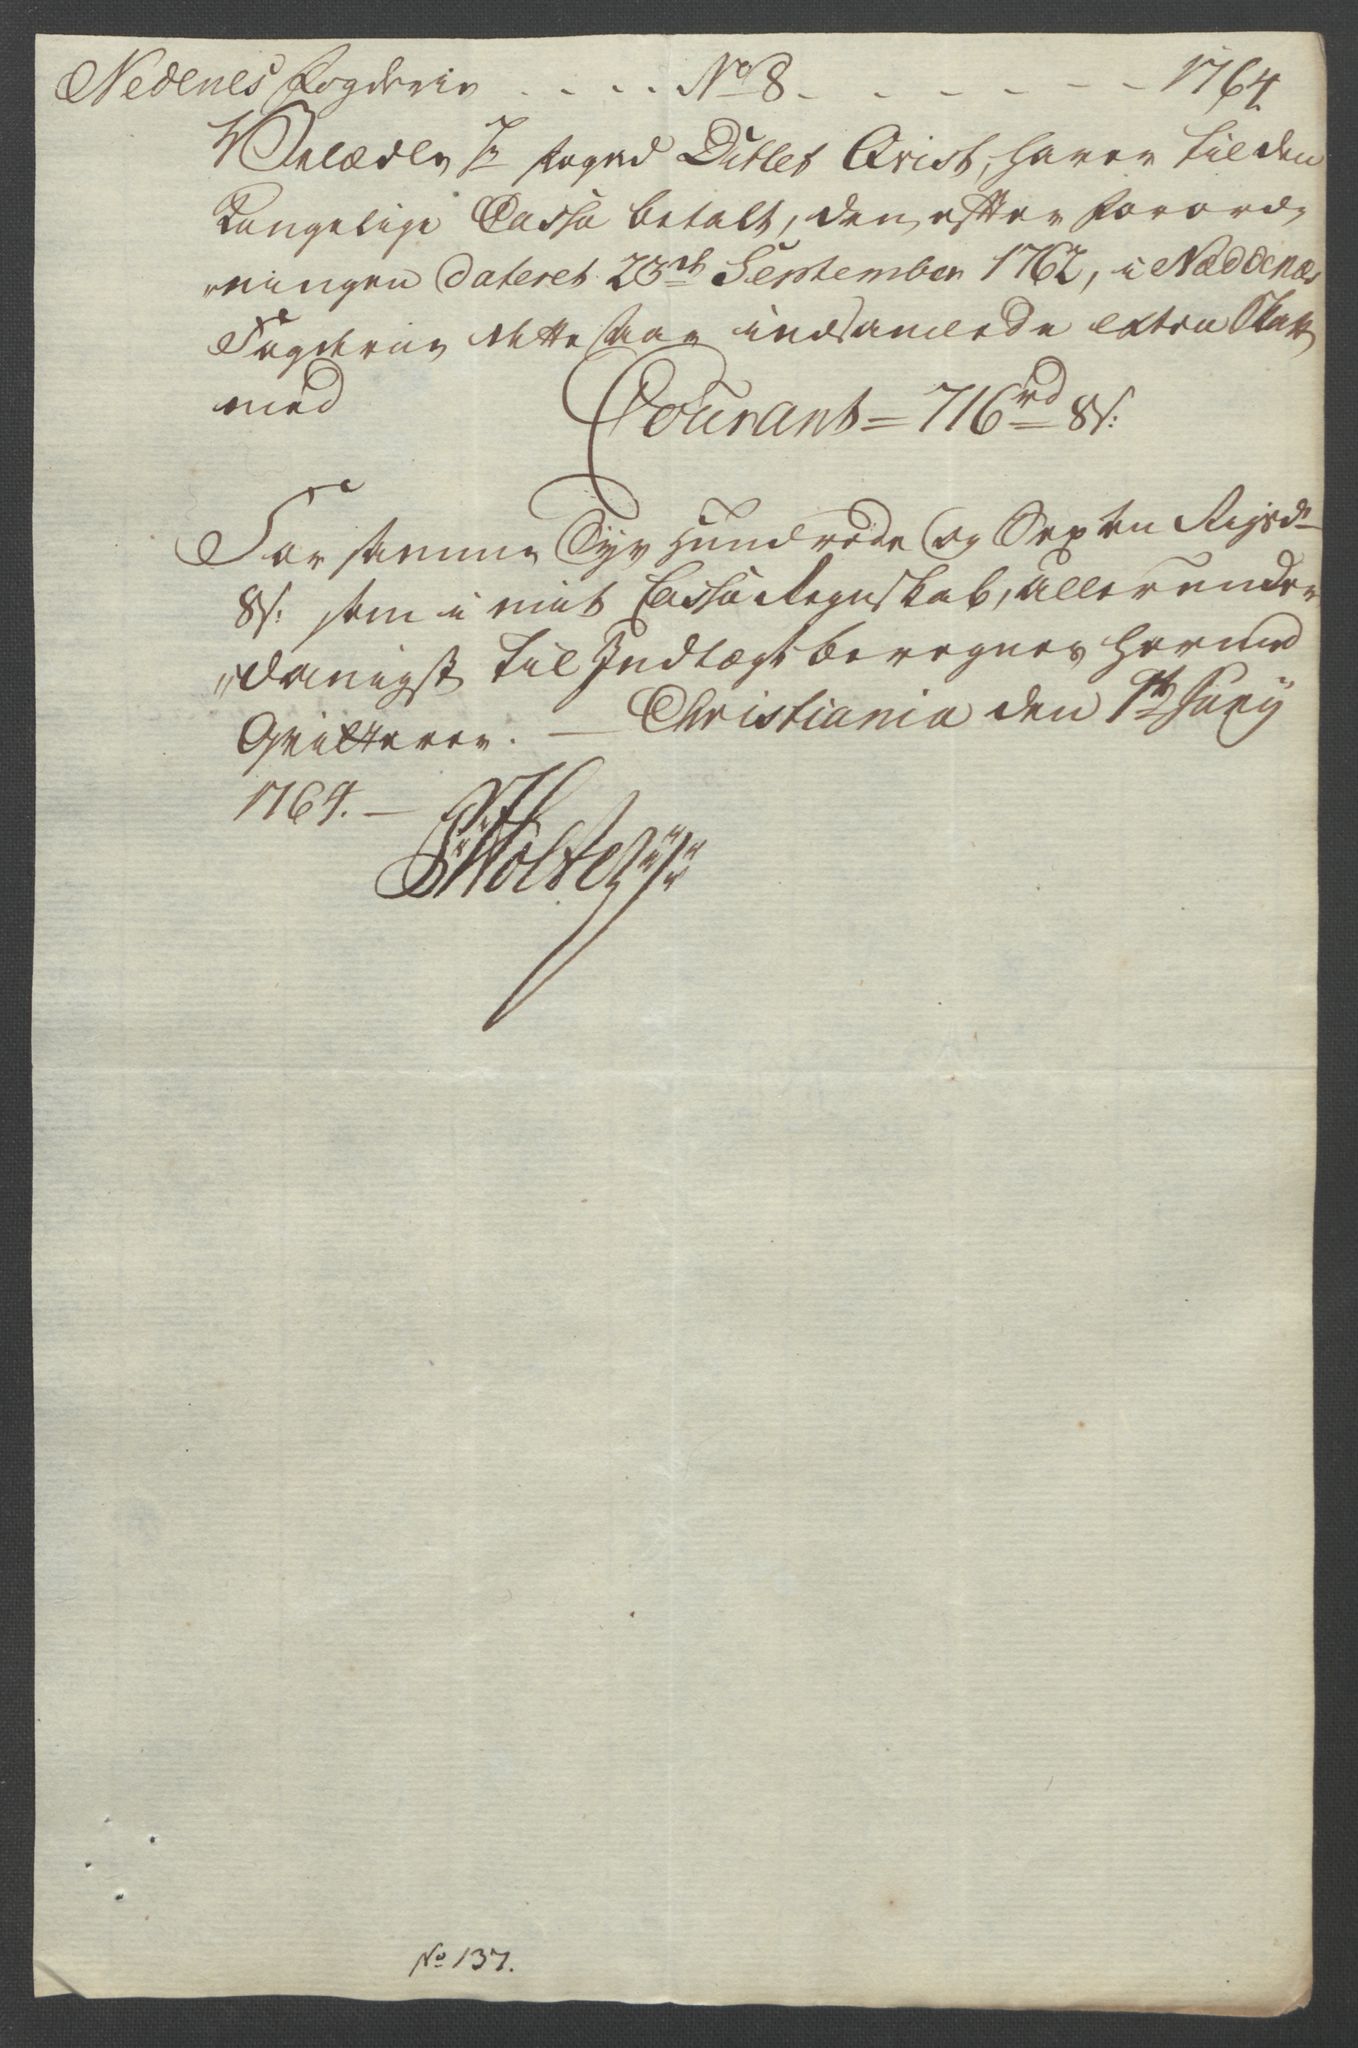 Nedenes Fogderie . . . . No 8. - - - - - - 1764.
Velædle Hr Foged Ditlef Qvist, haver til den
Kongelige Cassa betalt, den efter Forord,
„ningen dateret 23de September 1762, i Neddenæs
Fogderie dette Aar indsamlede extra Skatt
med
Courant = 716 rd 8 s:
For samme Syv Hundrede og Sexten Rigsdr
8 s: som i mit Cassa Regnskab, allerunder
„danigst til Indtægt beregnes hermed
Qvitterer. — Christiania den Juny
1764. —
PHolte
No 137.